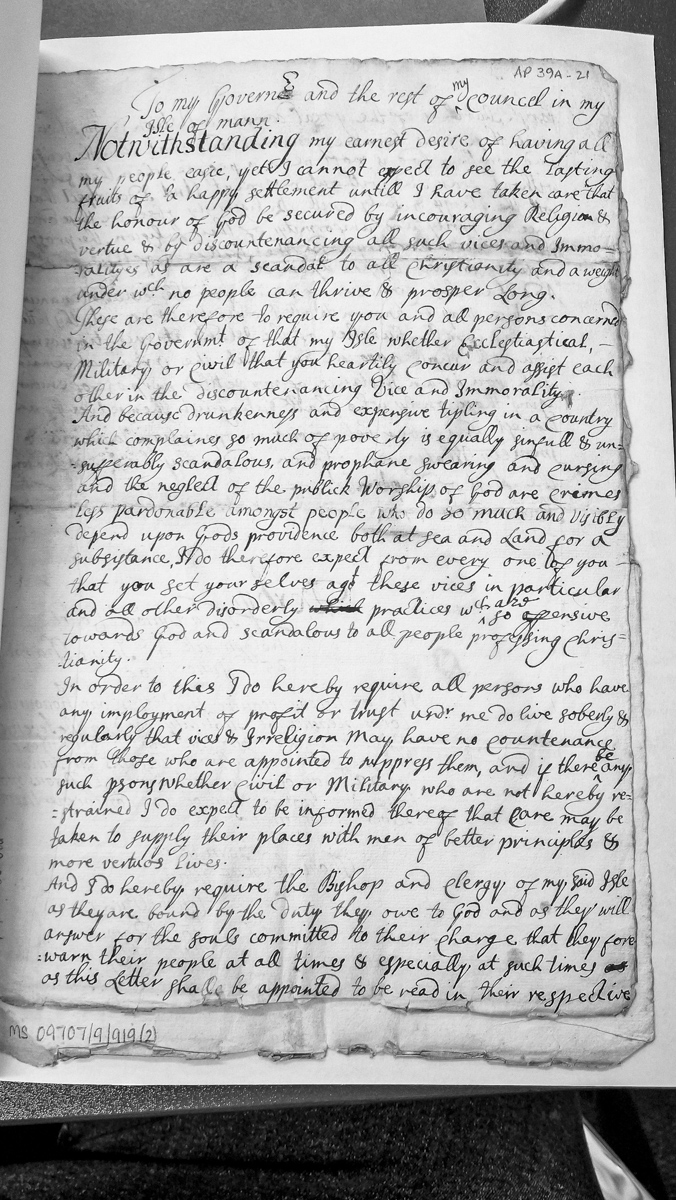 AP 39A-21
To my Governr and the rest of my Councel in my
Isle of mann.
Notwithstanding my earnest desire of having all
my people easie, yet I cannot expect to see the lasting
fruits of a happy settlement untill I have taken care that
the honour of God be secured by incouraging Religion &
vertue & by discountenancing all such vices and Immo-
ralityes as are a scandal to all Christianity and a weight
under wch no people can thrive & prosper Long.
These are therefore to require you and all persons concernd
in the Governmt of that my Isle whether Ecclestiastical, -
Military or Civil that you heartily concur and assist each
other in the discountenancing Vice and Immorality.
And because drunkenness and expensive tipling in a country
which complaines so much of poverty is equally sinfull & un-
-sufferably scandalous, and prophane swearing and cursing
and the neglect of the publick Worship of God are crimes
less pardonable amongst people who do so much and visibly
depend upon Gods providence both at sea and Land for a
subsistance, I do therefore expect from every one of you -
that you set your selves agt these vices in particular
and all other disorderly which practices wch are so offensive
towards God and scandalous to all people professing Chris=
-tianity.
In order to this I do hereby require all persons who have
any imployment of profit or trust undr me do live soberly &
regularly that vice & Irreligion may have no countenance
from those who are appointed to suppress them, and if there be any
such psons whether Civil or Military who are not hereby re=
=strained I do expect to be informed thereof that Care may be
taken to supply their places with men of better principles &
more vertuos lives.
And I do hereby require the Bishop and Clergy of my said Isle
as they are bound by the duty they owe to God and as they will
answer for the souls committed to their Charge that they fore
=warn their people at all times & especially at such times as
as this Letter shall be appointed to be read in their respective
MS 09707/9/9/9(2)